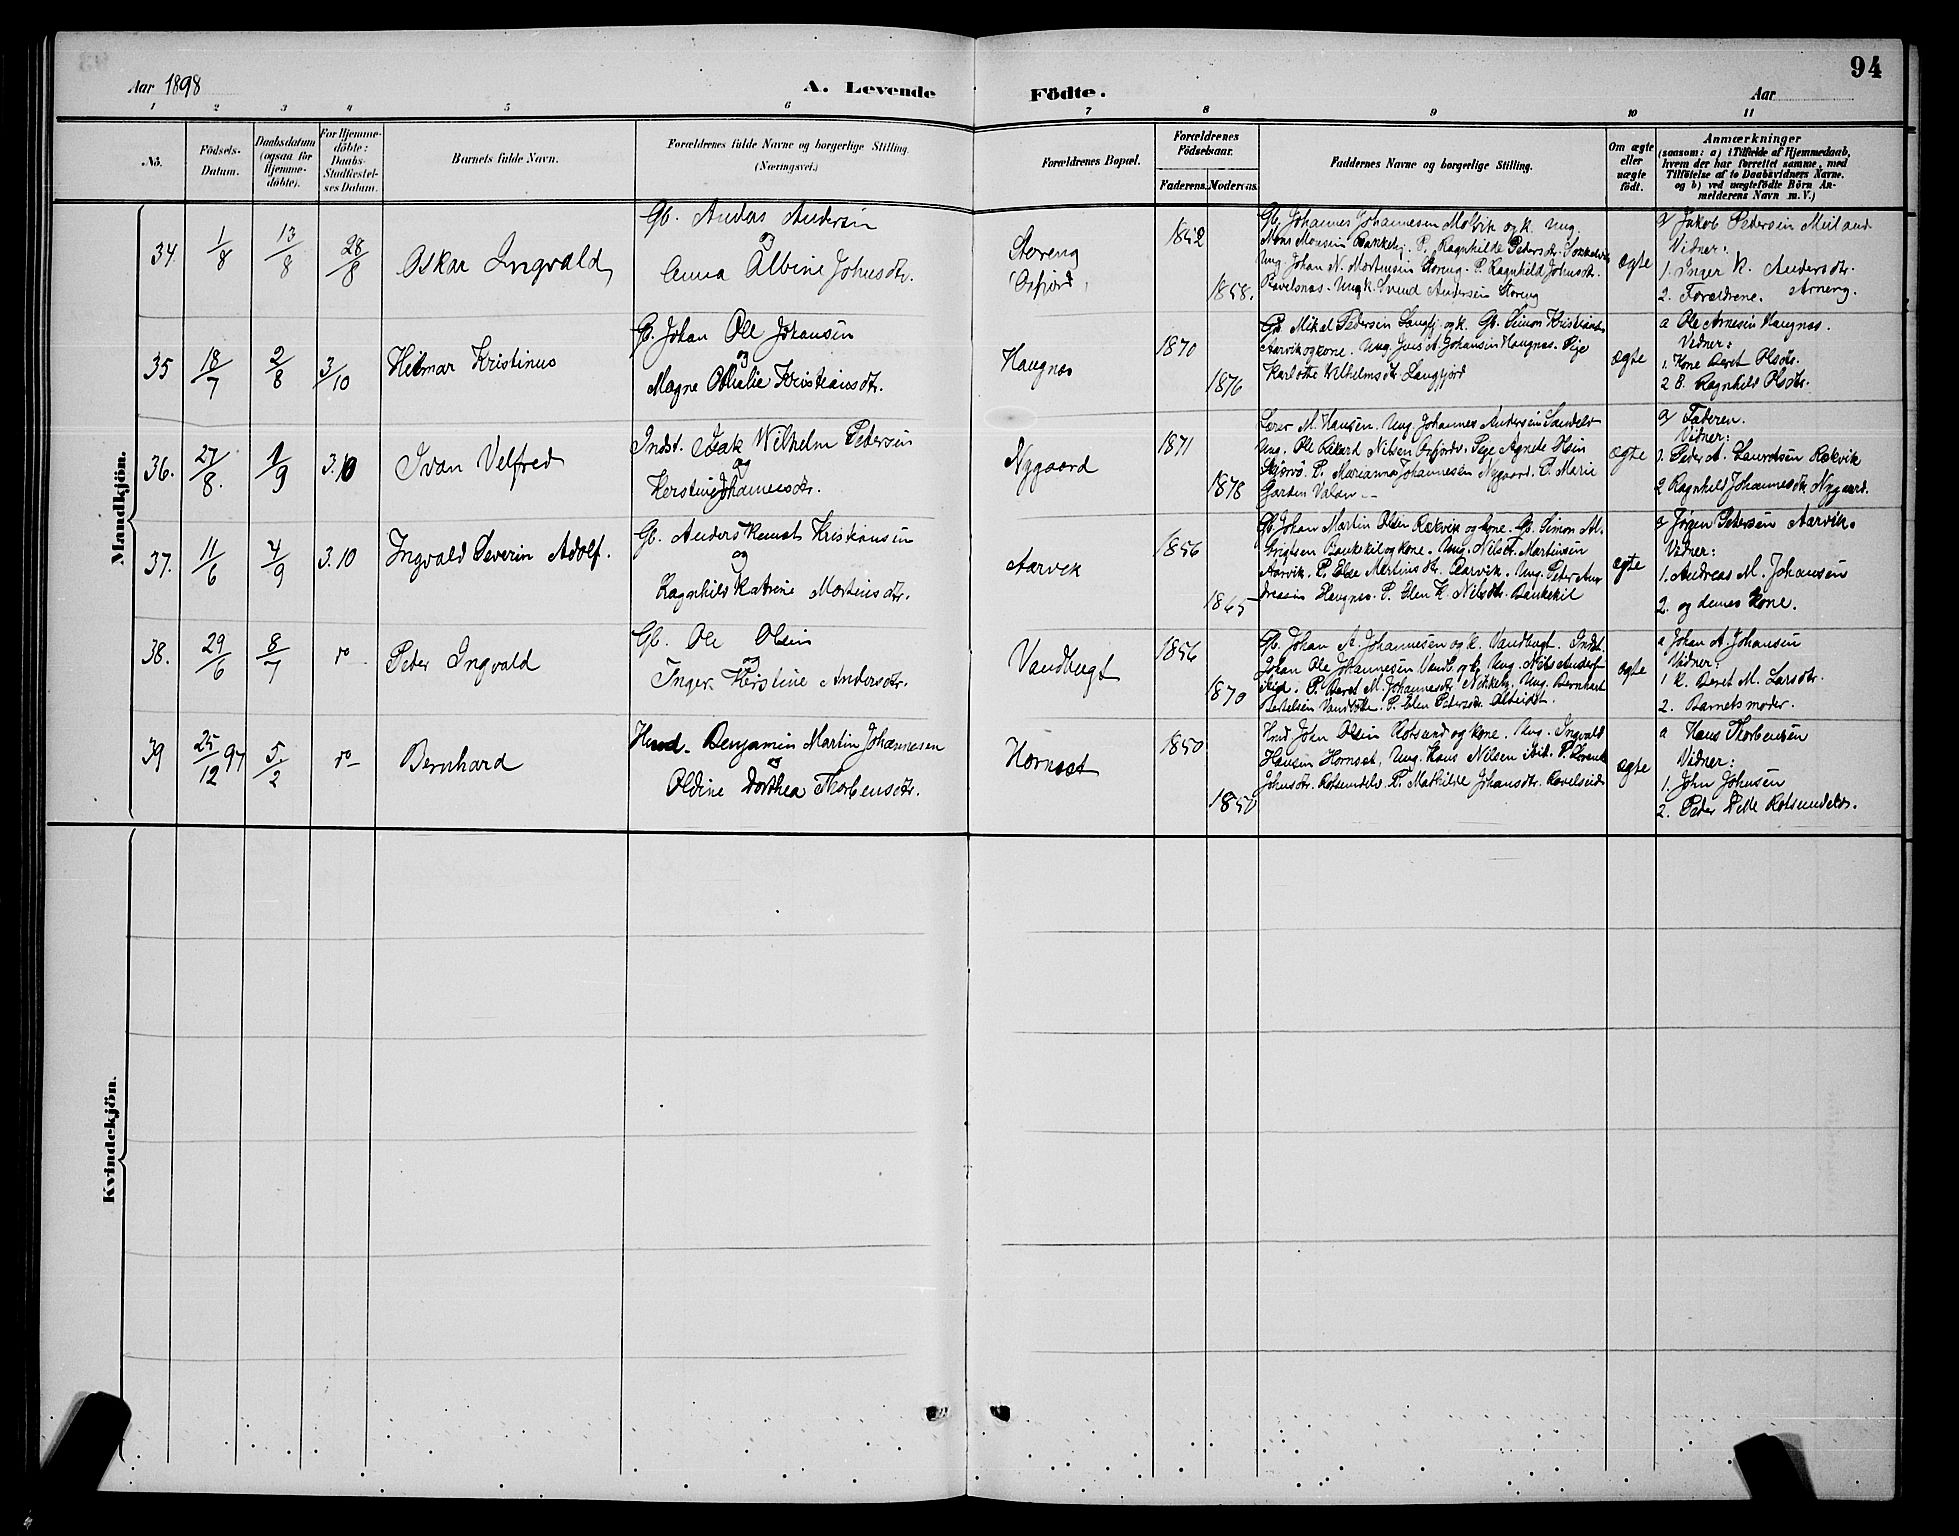 94
Aar 1898
A. Levende Födte.
Aar
1 2 3 4 5 6 7 8 9 10 11
No.
Födsels-Datum.
Daabsdatum (ogsaa for Hjemme-döbte).
For Hjemme-döbte: Daabs-Stadfæstel-ses Datum.
Barnets fulde Navn.
Forældrenes fulde Navne og borgerlige Stilling
(Næringsvei.)
Forældrenes Bopæl.
Forældrenes Födselsaar.
Faderens. Moderens.
Faddernes Navne og borgerlige Stilling.
Om ægte eller uægte födt.
Anmærkninger
(saasom: a) i Tilfælde af Hjemmedaab,
hvem der har forrettet samme, med
Tilföielse af to Daabsvidners Navne.
og b) ved uægtefödte Börn An-
melderens Navn m. V.)
Mandkjön.
34 1/8 13/8 28/8 Oskar Ingvald
Gb. Anders Andersen
og
Anna Albine Johnsdtr.
Storeng
Oxfjord
1852
1858.
Gb. Johannes Johannesen Molvik og k. Ung.
Mons Monsen P. Ragnhilde Petersdtr.
Ung Johan N. Mortensen Storeng. P. Ragnhild Johnsdtr.
Ravelsnæs. Ungk. Svend Andersen Storeng
ægte
a/ Jakob Pedersen Meiland
Vidner:
1. Inger K. Andersdtr.
2. Forældrene. Arneng.
35 18/7 2/8 3/10 Hilmar Kristinus
G. Johan Ole Johansen
og
Magne Othalie Kristiansdtr.
Haugnæs
1870
1876
Gb. Mikal Pedersen Langfj. og k. Gb. Simon Kristians
Aarvik og kone. Ung. Jens A. Johansen Haugnæs. Pige
Karlotte Wilhelmsdtr. Langfjord
ægte
a Ole Arnesen Haugnæs.
Vidner:
1. Kone Beret Olsdtr.
2 Ragnhild Olsdtr.
36. 27/8. 1/9 3.10 Ivan Velfred
Indst. Isak Wilhelm Petersen
og
Kerstine Johannesdtr.
Nygaard
1871
1878
Lærer M. Hansen. Ung. Johannes Andersen
Ung. Ole Rikard Nilsen Oxfjord. Pige Agnete Hein
Skjervö. P. Marianna Johannesen Nygaard. P. Marie
ægte
a/ Faderen.
Vidner:
1. Peder A. Lauritsen Rækvik
2 Ragnhild Johannesdtr. Nygaard.
37. 11/6 4/9 3.10 Ingvald Severin Adolf.
Gb. Anders Kristiansen
og
Ragnhild Katrine Mortensdtr.
Aarvik
1856
1865
Gb. Johan Martin Olsen Rækvik og kone. Gb. Simon
og kone. Ung. Nils Martinsen
Aarvik. P. Martinsdtr. Aarvik. Ung. Peter
Haugnæs. P. Elen K. Nilsdtr.
ægte
a Jörgen Petersen Aarvik.
Vidner:
1. Andreas M. Johansen
2. og dennes Kone.
38. 29/6 8/7 Peder Ingvald
Gb. Ole Olsen
og
Inger Kerstine Andersdtr.
Vandbugt
1856
1870
Gb. Johan A. Johannesen og k. Vandbugt. Indst.
Johan Ole Johannesen Vandb. og k. Ung. Nils
ibid. P. Beret M. Johannesdtr. Ung. Bernhart
P. Elen Pedersdtr.
ægte
a Johan A. Johansen
Vidner:
1 K. Beret M. Larsdtr.
2. Barnets moder.
39 25/12 97 5/2 Bernhard
Hmd. Benjamin Martin Johannesen
og
Oldine Dorthea Thorbensdtr.
Hornset
1850
1850
Hmd John Olsen Rotsund og kone. Ung. Ingvald
Hansen Hornset, Ung. Hans Nilsen ibid.
Johnsdtr. Rotsundelv. P. Mathilde Johansdtr. Ravelseid
ægte
a Hans Thorbensen
Vidner:
1. John Johnsen
2. Peder Rotsundelv.
Kvindekjön.